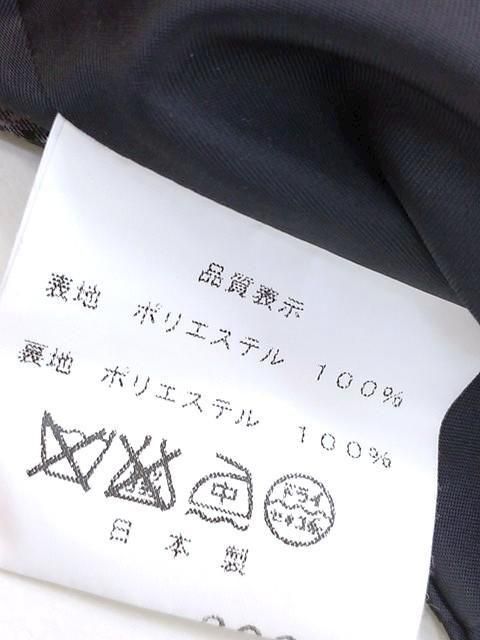 品質表示
表地 ポリエステル 100%
裏地 ポリエステル 100%
中 ドライ セキユ系
日本製